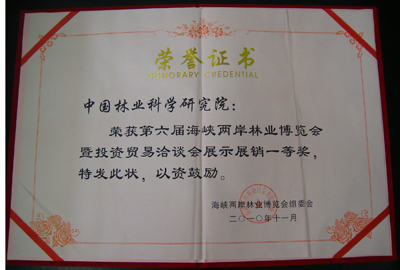 荣誉证书
HONORARY CREDENTIAL
中国林业科学研究院：
荣获第六届海峡两岸林业博览会
暨投资贸易洽谈会展示展销一等奖，
特发此状，以资鼓励。
海峡两岸林业博览会组委会
二〇一〇年十一月